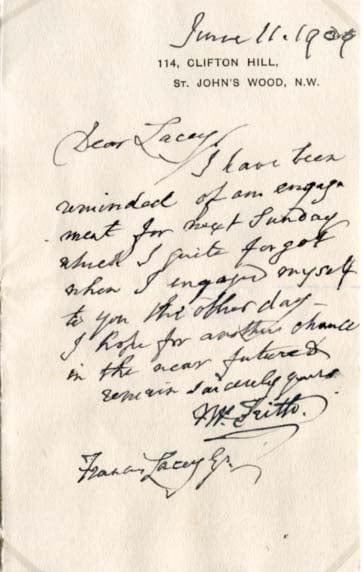 June 11. 1909
114, CLIFTON HILL,
ST. JOHN'S WOOD, N.W.
Dear Lacey,
I have been
reminded of an engage
ment for next Sunday
which I quite forgot
when I engaged myself
to you the other day –
I hope for another chance
in the near future &
remain sincerely yours
W.P. Frith.
Francis Lacey Esq.